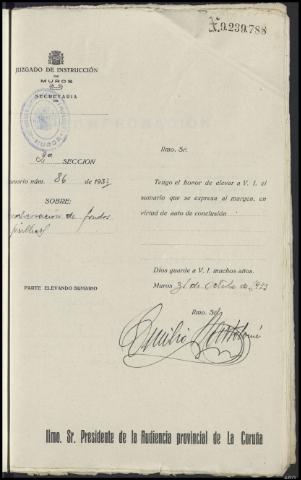 9.239.788
JUZGADO DE INSTRUCCIÓN
DE
MUROS
SECRETARIA
SECCIÓN
Ilmo. Sr.
mario núm. 86 de 193
Tengo el honor de elevar a V. I. el
sumario que se expresa al margen, en
virtud de auto de conclusión
SOBRE:
de fondos
Dios guarde a V. I. muchos años.
PARTE ELEVANDO SUMARIO
Muros 31 de Octubre de 193
Ilmo. Sr.
Emilio
Ilmo. Sr. Presidente de la Audiencia provincial de La Coruña